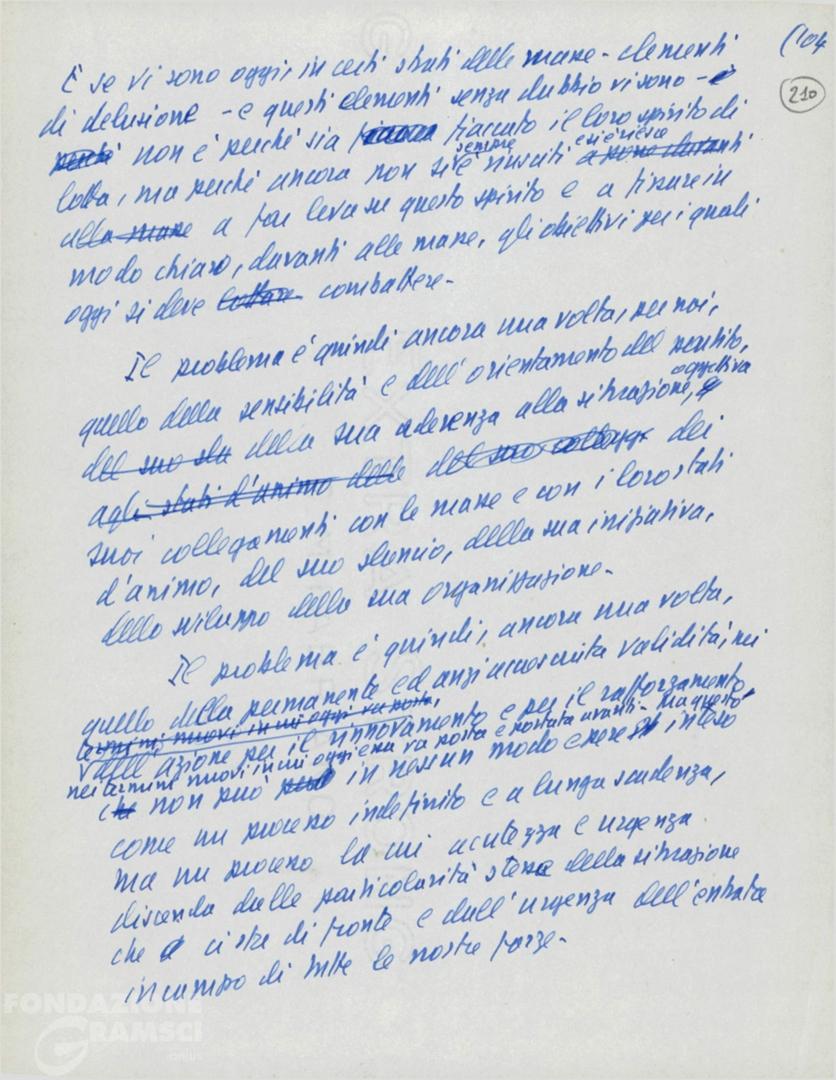 (104
210
E se vi sono oggi, in certi strati delle masse - elementi
di delusione - e questi elementi senza dubbio vi sono - e
perché non è perché sia fiaccato il loro spirito di
sempre e si è riesce
lotta, ma perché ancora non si è riusciti a porre davanti
alle masse a far leva su questo spirito e a fissare in
modo chiaro, davanti alle masse, gli obiettivi per i quali
oggi si deve lottare combattere.
Il problema è quindi ancora una volta, per noi,
quello della sensibilità e dell'orientamento del partito,
oggettiva
del suo sla della sua aderenza alla situazione, e
agli stati d'animo delle del suo collega dei
suoi collegamenti con le masse e con i loro stati
d'animo, del suo slancio, della sua iniziativa,
dello sviluppo della sua organizzazione.
Il problema è quindi, ancora una volta,
quello della permanente ed anzi accresciuta validità, nei
termini nuovi in cui oggi va posta,
dell'azione per il rinnovamento e per il rafforzamento
nei termini nuovi in cui oggi essa va posta e portata avanti. Ma questo
che non può in nessun modo essere inteso
come un processo indefinito e a lunga scadenza,
ma un processo la cui acutezza e urgenza
discenda dalle particolarità stesse della situazione
che ci sta di fronte e dall'urgenza dell'entrata
in campo di tutte le nostre forze.
FONDAZIONE
GRAMSCI
onlus